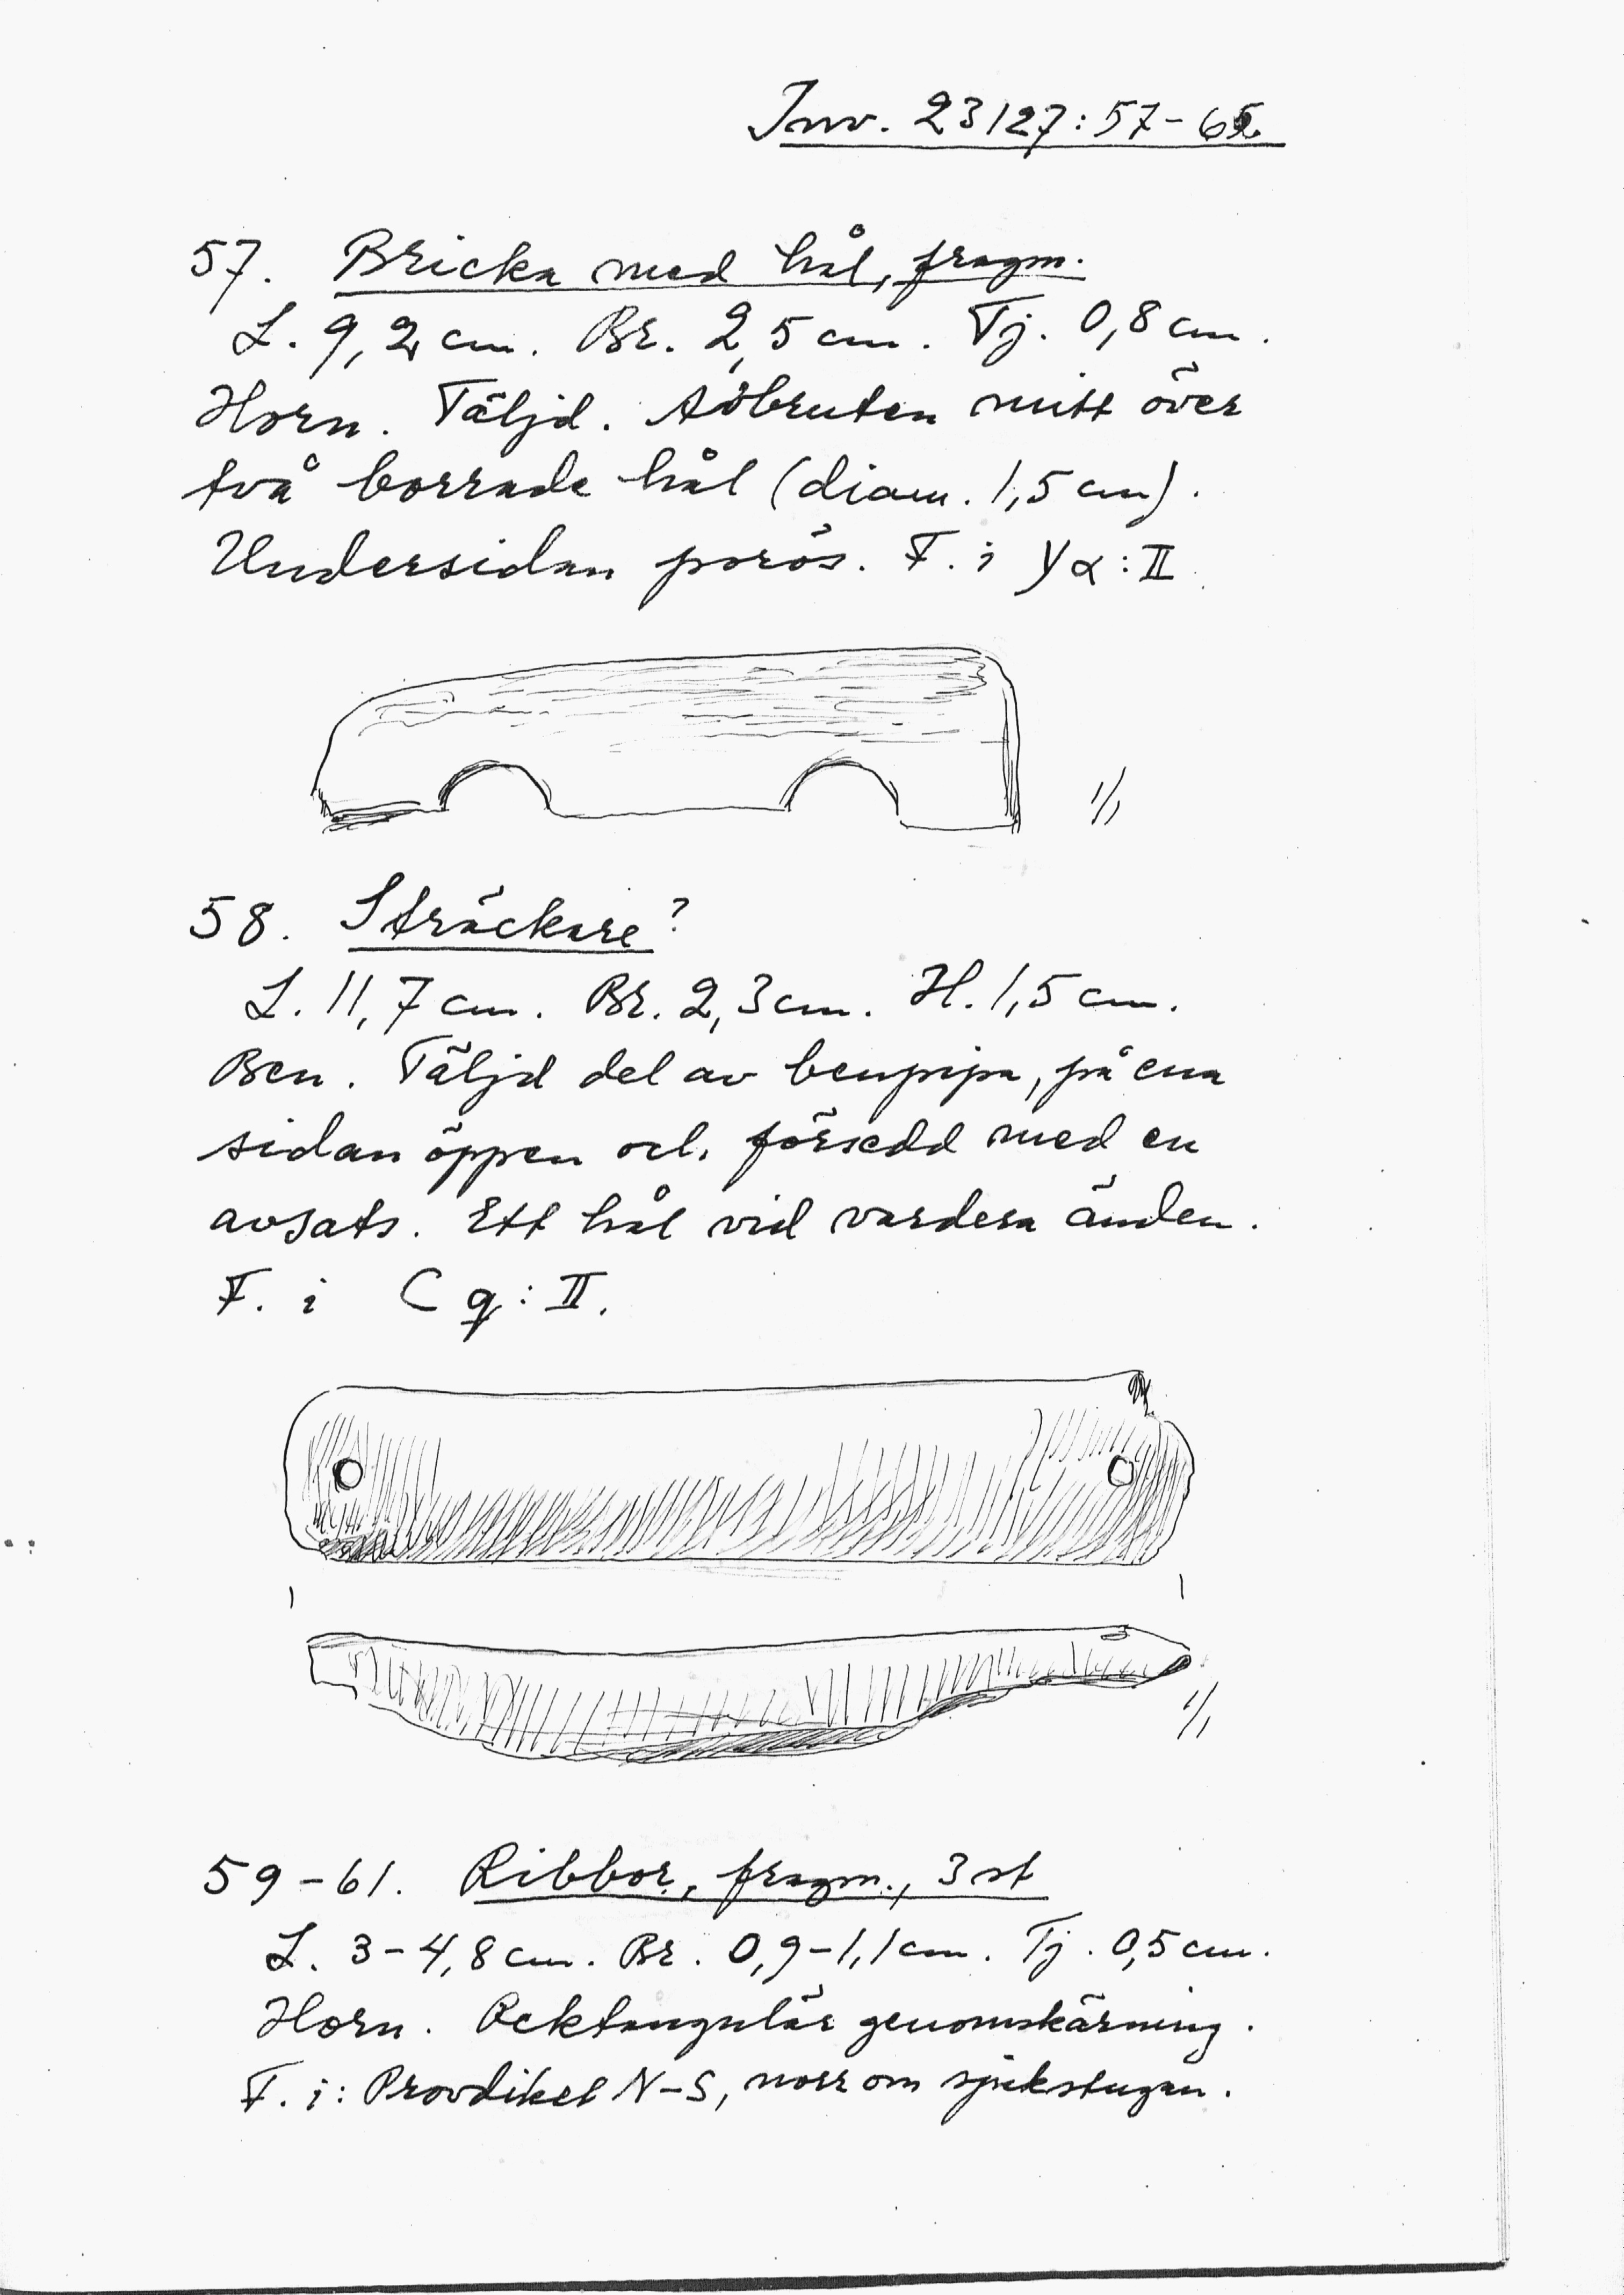 Inv. 23127:57-65.
57. Bricka med hål, fragm.
L. 9,2 cm. Br. 2,5 cm. Tj. 0,8 cm.
Horn. Täljd. Avbruten mitt över
två borrade hål (diam. 1,5 cm).
Undersidan porös. F. i Yα:II.
1/1
58. Sträckare?
L. 11,7 cm. Br. 2,3 cm. H. 1,5 cm.
Ben. Täljd del av benpipa, på ena
sidan öppen och försedd med en
avsats. Ett hål vid vardera änden.
F. i Cq:II.
1/1
59-61. Ribbor, fragm., 3 st
L. 3-4,8 cm. Br. 0,9-1,1 cm. Tj. 0,5 cm.
Horn. Rektangulär genomskärning.
F. i: Provdiket N-S, norr om sjukstugan.